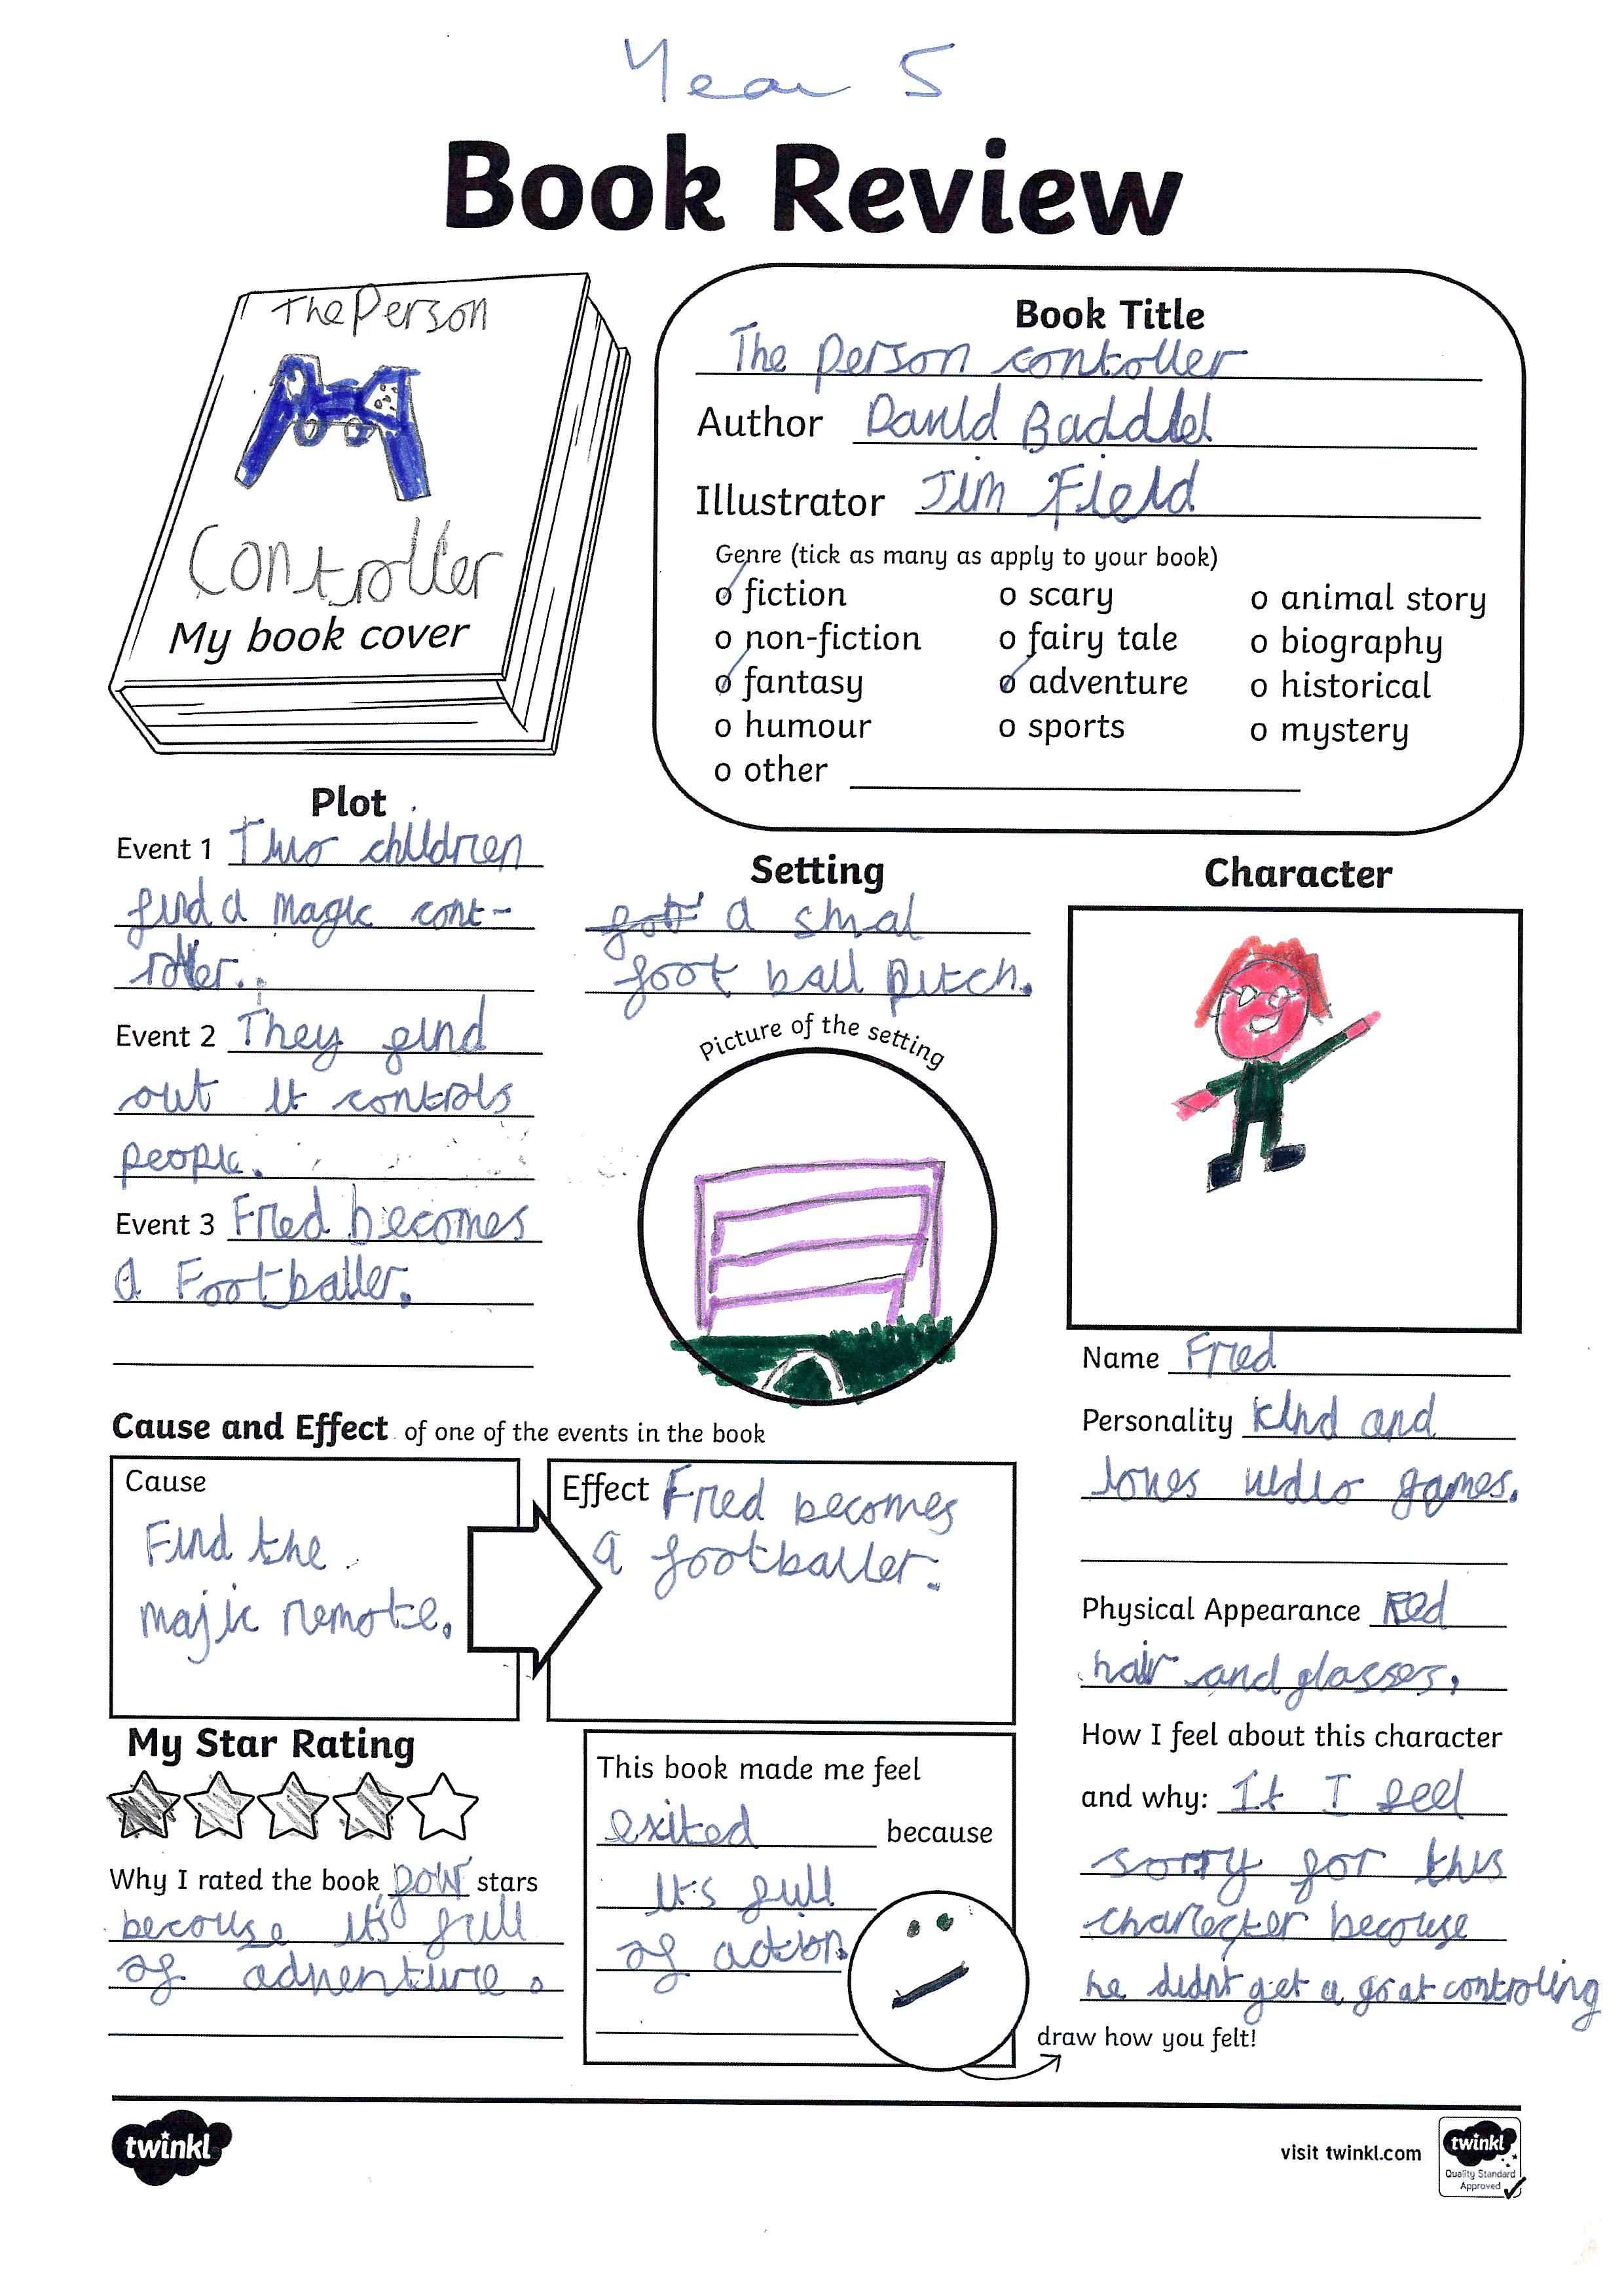 Year 5
Book Review
The Person
Controller
My book cover
Book Title
The Person controller
Author David Baddiel
Illustrator Jim Field
Genre (tick as many as apply to your book)
o fiction o scary o animal story
o non-fiction o fairy tale o biography
o fantasy o adventure o historical
o humour o sports o mystery
o other
Plot
Event 1 Two children
find a magic cont-
roller..
Event 2 They find
out it controls
people.
Event 3 Fred becomes
a Footballer.
Setting
a smal
foot ball pitch.
Picture of the setting
Character
Name Fred
Personality kind and
loves video games.
Physical Appearance Red
hair and glasses.
How I feel about this character
and why: It I feel
sorry for this
charecter becouse
he didnt get a go at controling
Cause and Effect of one of the events in the book
Cause
Find the
majic remote.
Effect Fred becomes
a footballer.
My Star Rating
Why I rated the book four stars
becouse it's full
of adventure.
This book made me feel
exited because
It's full
of action.
draw how you felt!
twinkl
visit twinkl.com
twinkl
Quality Standard
Approved